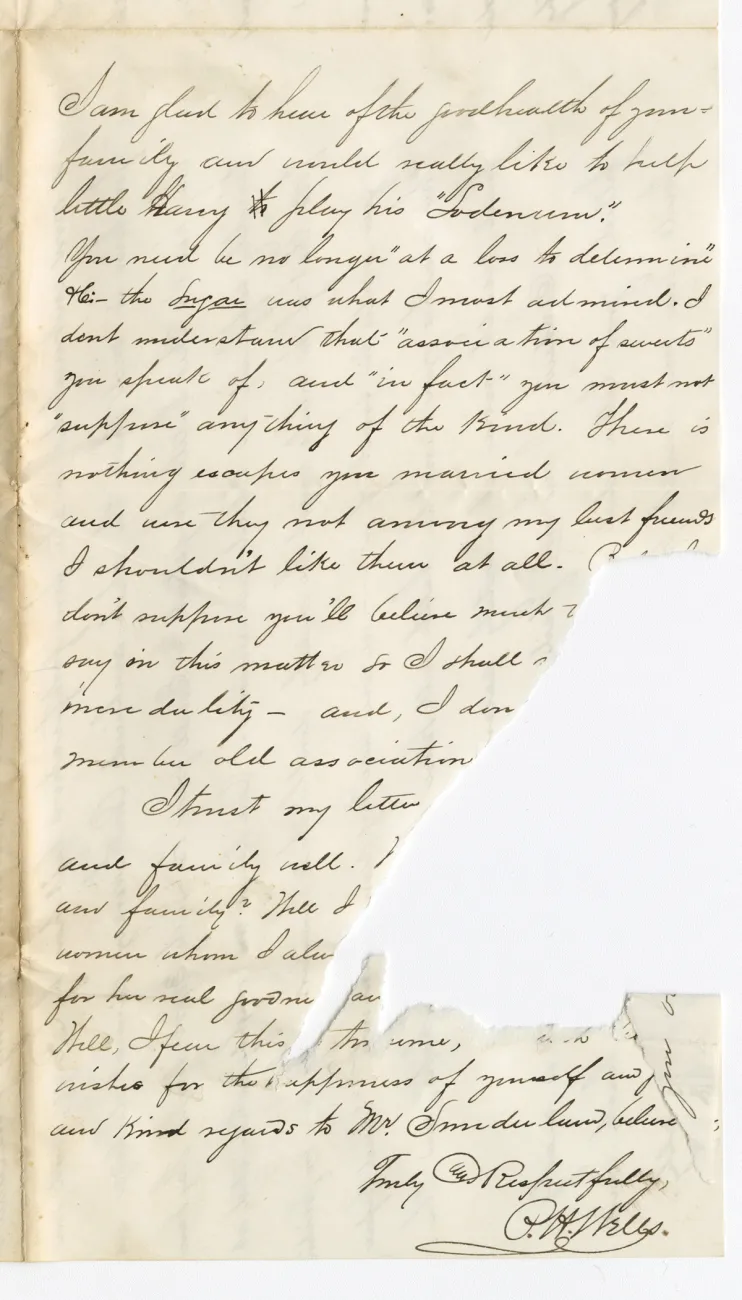 I am glad to hear of the good health of your
family and would really like to help
little Harry to play his "Lodenum".
You need be no longer "at a loss to determine"
&c:- the Sugar was what I most admired. I
dont understand that "association of sweets"
you speak of, and "in fact" you must not
"suppose" anything of the kind. There is
nothing escapes you married women
and were they not among my best friends
I shouldn't like them at all.
don't suppose you'll believe much
say in this matter so I shall
incredulity - and, I don
member old association
I trust my letter
and family well.
and family? Will I
women whom I alw
for her real goodne
Well, I fear this
wishes for the happiness of yourself and
and kind regards to Mr. Sunderland, believe
Truly and Respectfully,
P. H. Wells.
you